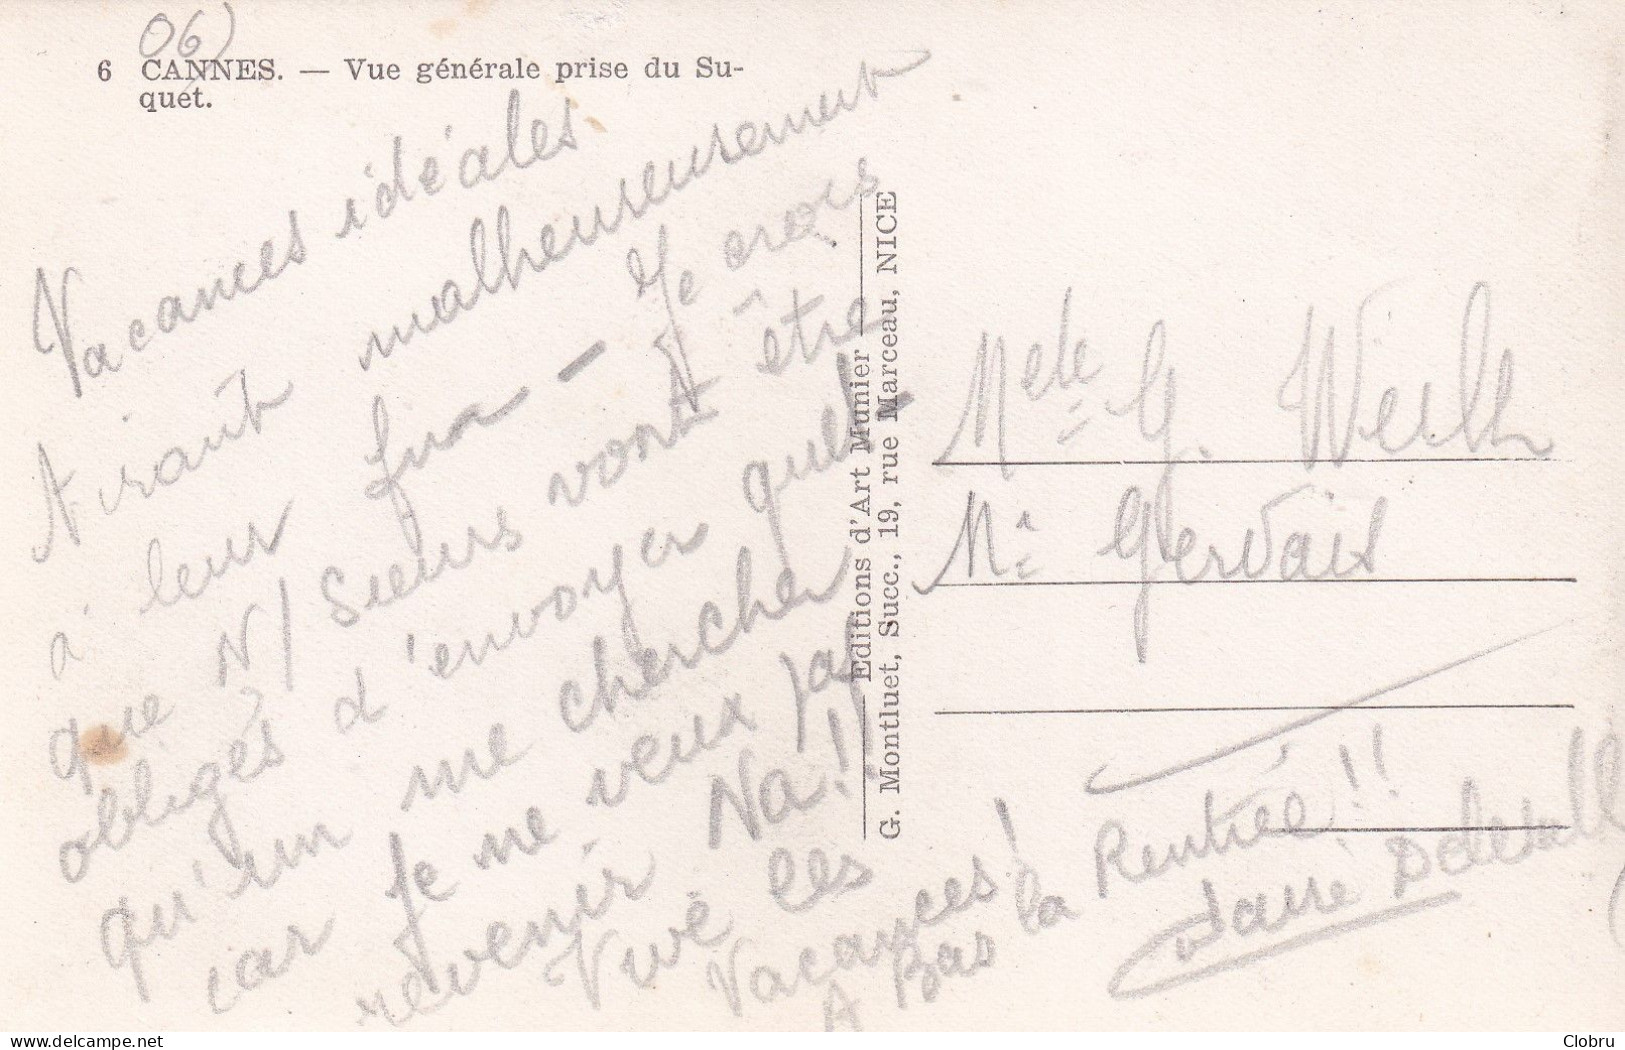 06)
6 CANNES. — Vue générale prise du Su-
quet.
Vacances idéales
Tirant malheureusement
à leur fin — Je crois
que N/ Sieurs vont être
obligés d'envoyer quelq
qu'un me chercher
car je ne veux pas
revenir Na!
Vive les
Vacances!
A Bas la Rentrée!!
Editions d'Art Munier
G. Montluet, Succ., 19, rue Marceau, NICE
Melle G. Weill
Mr Gervais
Clobru